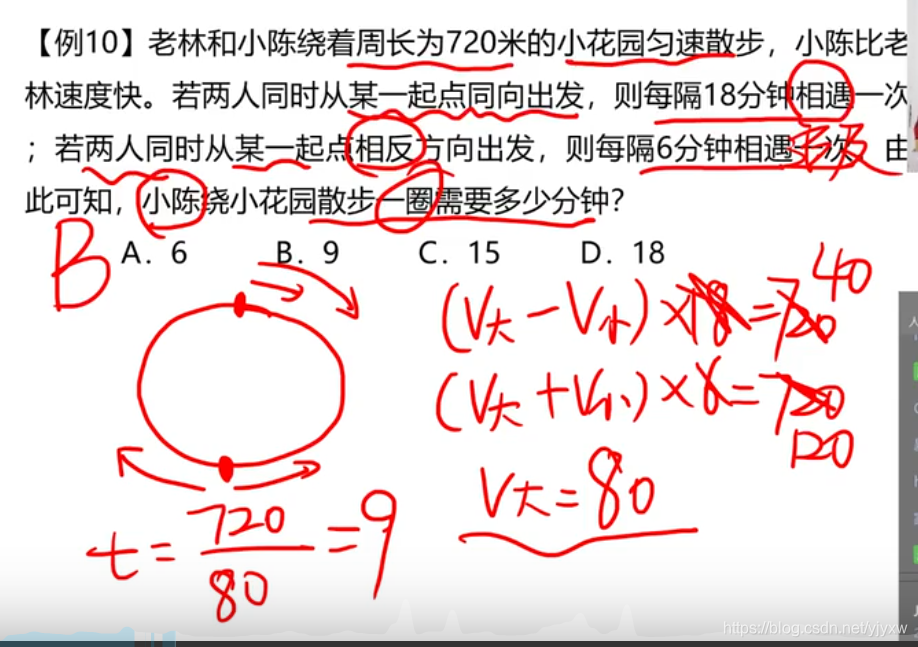 【例10】老林和小陈绕着周长为720米的小花园匀速散步，小陈比老
林速度快。若两人同时从某一起点同向出发，则每隔18分钟相遇一次
；若两人同时从某一起点相反方向出发，则每隔6分钟相遇一次。由
此可知，小陈绕小花园散步一圈需要多少分钟？
追及
B
A．6 B．9 C．15 D．18
40
(V大-V小)×18=720
(V大+V小)×6=720
120
V大=80
t=720/80=9
https://blog.csdn.net/yjyxw